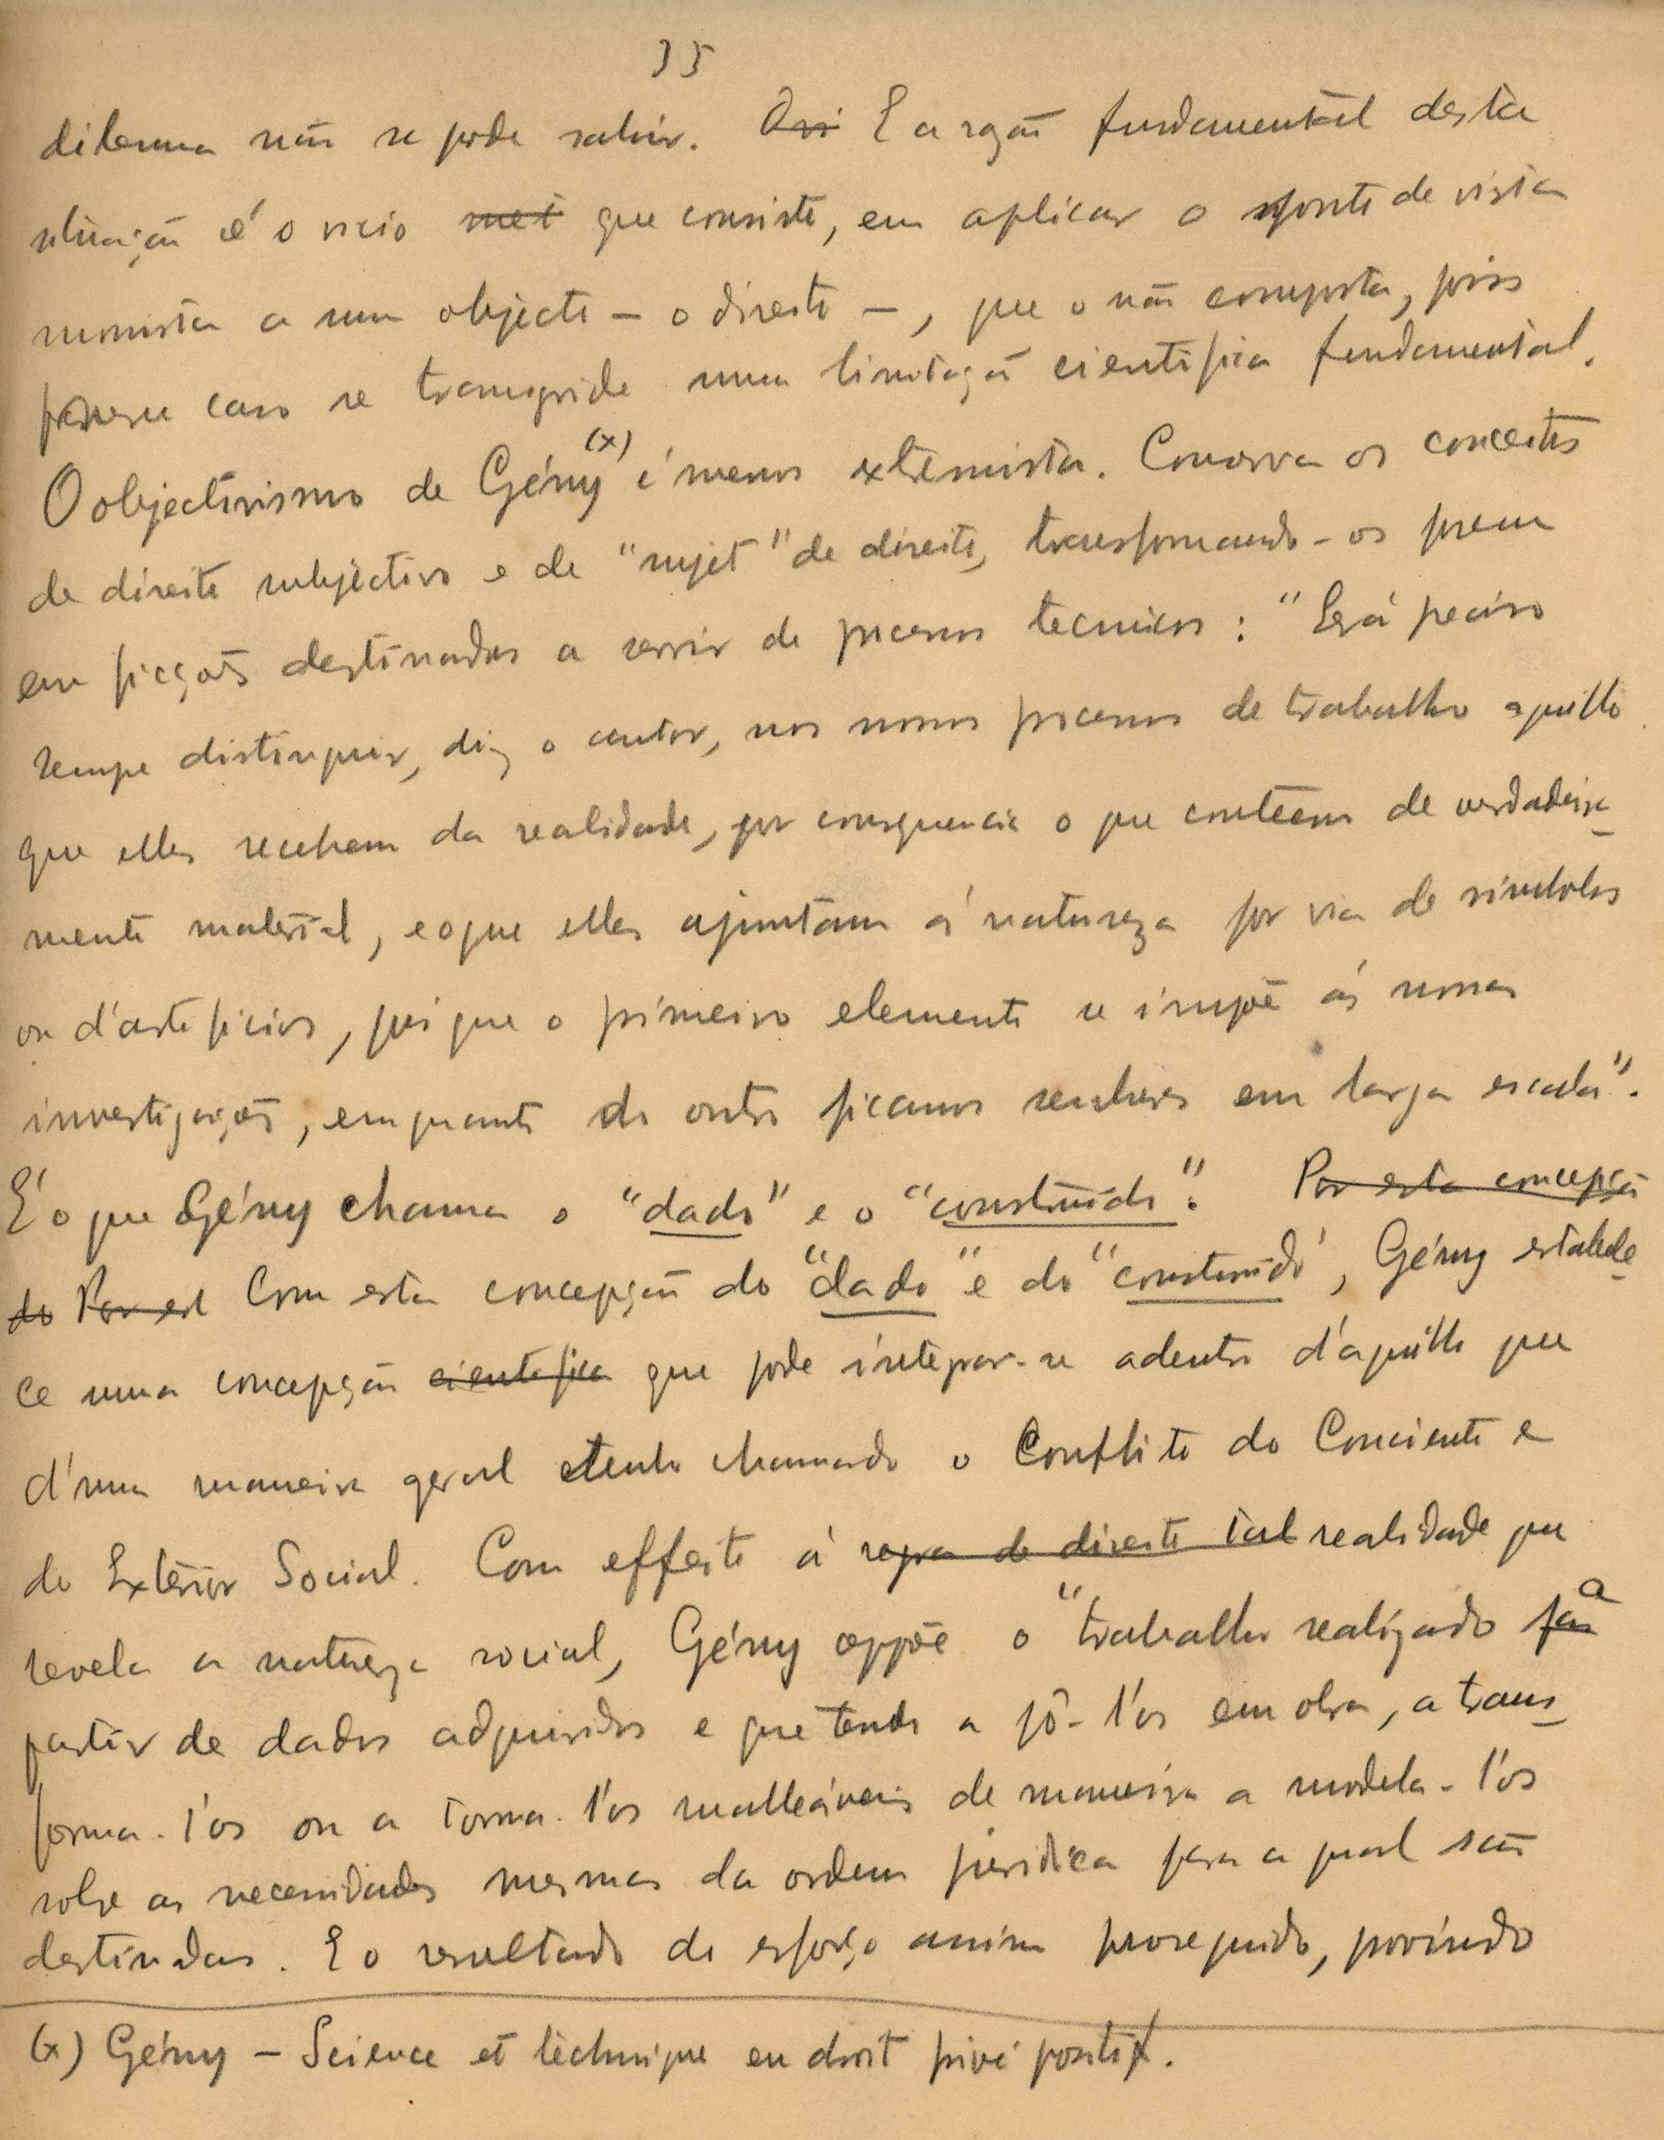 35
dilemma não se pode sahir. E a razão fundamental desta
situação é o vicio que consiste, em aplicar o ponto de vista
monista a um objecto – o direito –, que o não comporta, pois
nesse caso se transgride uma limitação cientifica fundamental.
O objectivismo de Gény (x) é menos extremista. Conserva os conceitos
de direito subjectivo e de "sujet" de direito, transformando-os porem
em ficções destinadas a servir de processos tecnicos: "Será preciso
sempre distinguir, diz o autor, nos nossos processos de trabalho aquillo
que elles recebem da realidade, por consequencia o que conteem de verdadeira-
mente material, e o que elles ajuntam á natureza por via de simbolos
ou d'artificios, pois que o primeiro elemento se impõe ás nossas
investigações, emquanto do outro ficamos senhores em larga escala".
É o que Gény chama o "dado" e o "construido". Por esta concepção
do Por est Com esta concepção do "dado" e do "construido", Gény estabele-
ce uma concepção cientifica que pode integrar-se adentro d'aquillo que
d'uma maneira geral tenho chamado o Conflito do Consciente e
do Exterior Social. Com effeito á regra de direito tal realidade que
revela a natureza social, Gény oppõe o "trabalho realizado a
partir de dados adquiridos e que tende a pô-l'os em obra, a trans-
forma-l'os ou a torna-l'os malleáveis de maneira a modela-l'os
sobre as necessidades mesmas da ordem juridica para a qual são
destinados. E o resultado do esforço assim proseguido, provindo
(x) Gény – Science et téchnique en droit privé positif.